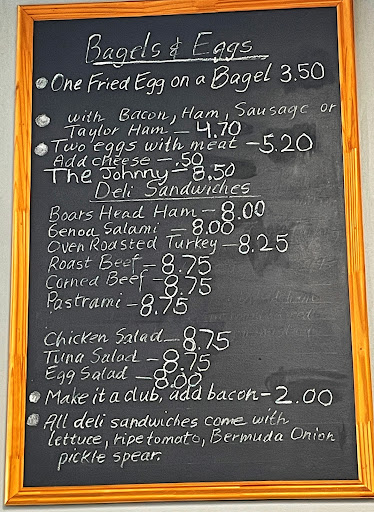 Bagels & Eggs
One Fried Egg on a Bagel 3.50
with Bacon, Ham, Sausage or
Taylor Ham — 4.70
Two eggs with meat — 5.20
Add cheese — .50
The Johnny — 8.50
Deli Sandwiches
Boars Head Ham — 8.00
Genoa Salami — 8.00
Oven Roasted Turkey — 8.25
Roast Beef — 8.75
Corned Beef — 8.75
Pastrami — 8.75
Chicken Salad — 8.75
Tuna Salad — 8.75
Egg Salad — 8.00
Make it a club, add bacon — 2.00
All deli sandwiches come with
lettuce, ripe tomato, Bermuda Onion
pickle spear.